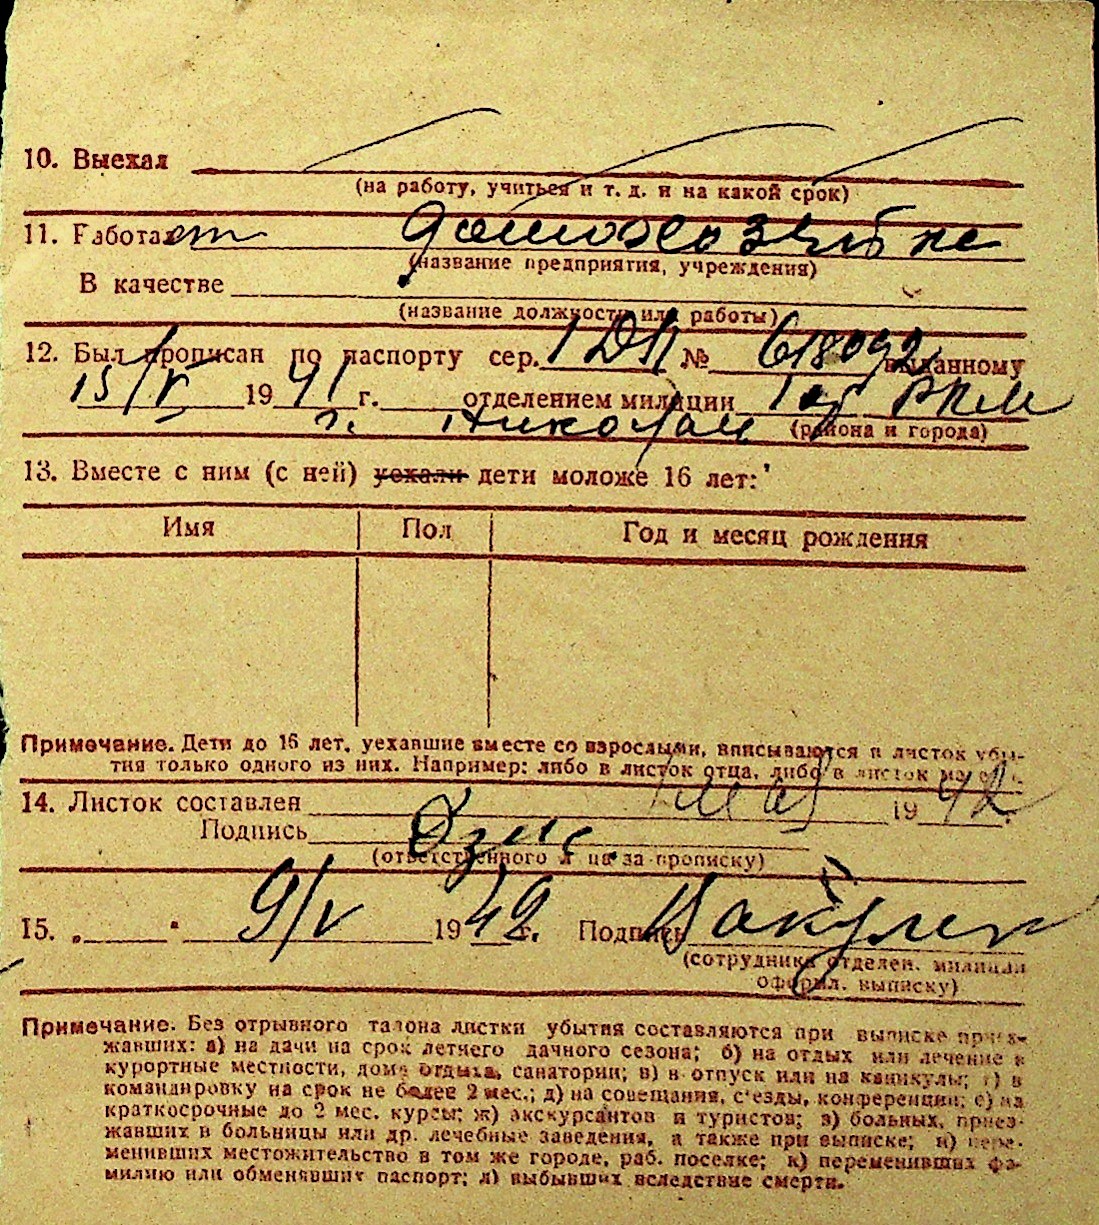 10. Выехал
(на работу, учиться и т. д. и на какой срок)
11. Работает домохозяйке
(название предприятия, учреждения)
В качестве
(название должности или работы)
12. Был прописан по паспорту сер. 1 ДП № 618092 выданному
15/V 1941 г. отделением милиции 1 РКМ
г. Николаи (района и города)
13. Вместе с ним (с ней) уехали дети моложе 16 лет:
Имя Пол Год и месяц рождения
Примечание. Дети до 16 лет, уехавшие вместе со взрослыми, вписываются в листок убы-
тия только одного из них. Например: либо в листок отца, либо в листок матери.
14. Листок составлен мая 1942.
Подпись
(ответственного лица за прописку)
15. „ " 9/V 1942 г. Подпись
(сотрудника отделен. милиции
оформл. выписку)
Примечание. Без отрывного талона листки убытия составляются при выписке приез-
жавших: а) на дачи на срок летнего дачного сезона; б) на отдых или лечение в
курортные местности, дома отдыха, санатории; в) в отпуск или на каникулы; г) в
командировку на срок не более 2 мес.; д) на совещания, с'езды, конференции; е) на
краткосрочные до 2 мес. курсы; ж) экскурсантов и туристов; з) больных, приез-
жавших в больницы или др. лечебные заведения, а также при выписке; и) пере-
менивших местожительство в том же городе, раб. поселке; к) переменивших фа-
милию или обменявших паспорт; л) выбывших вследствие смерти.